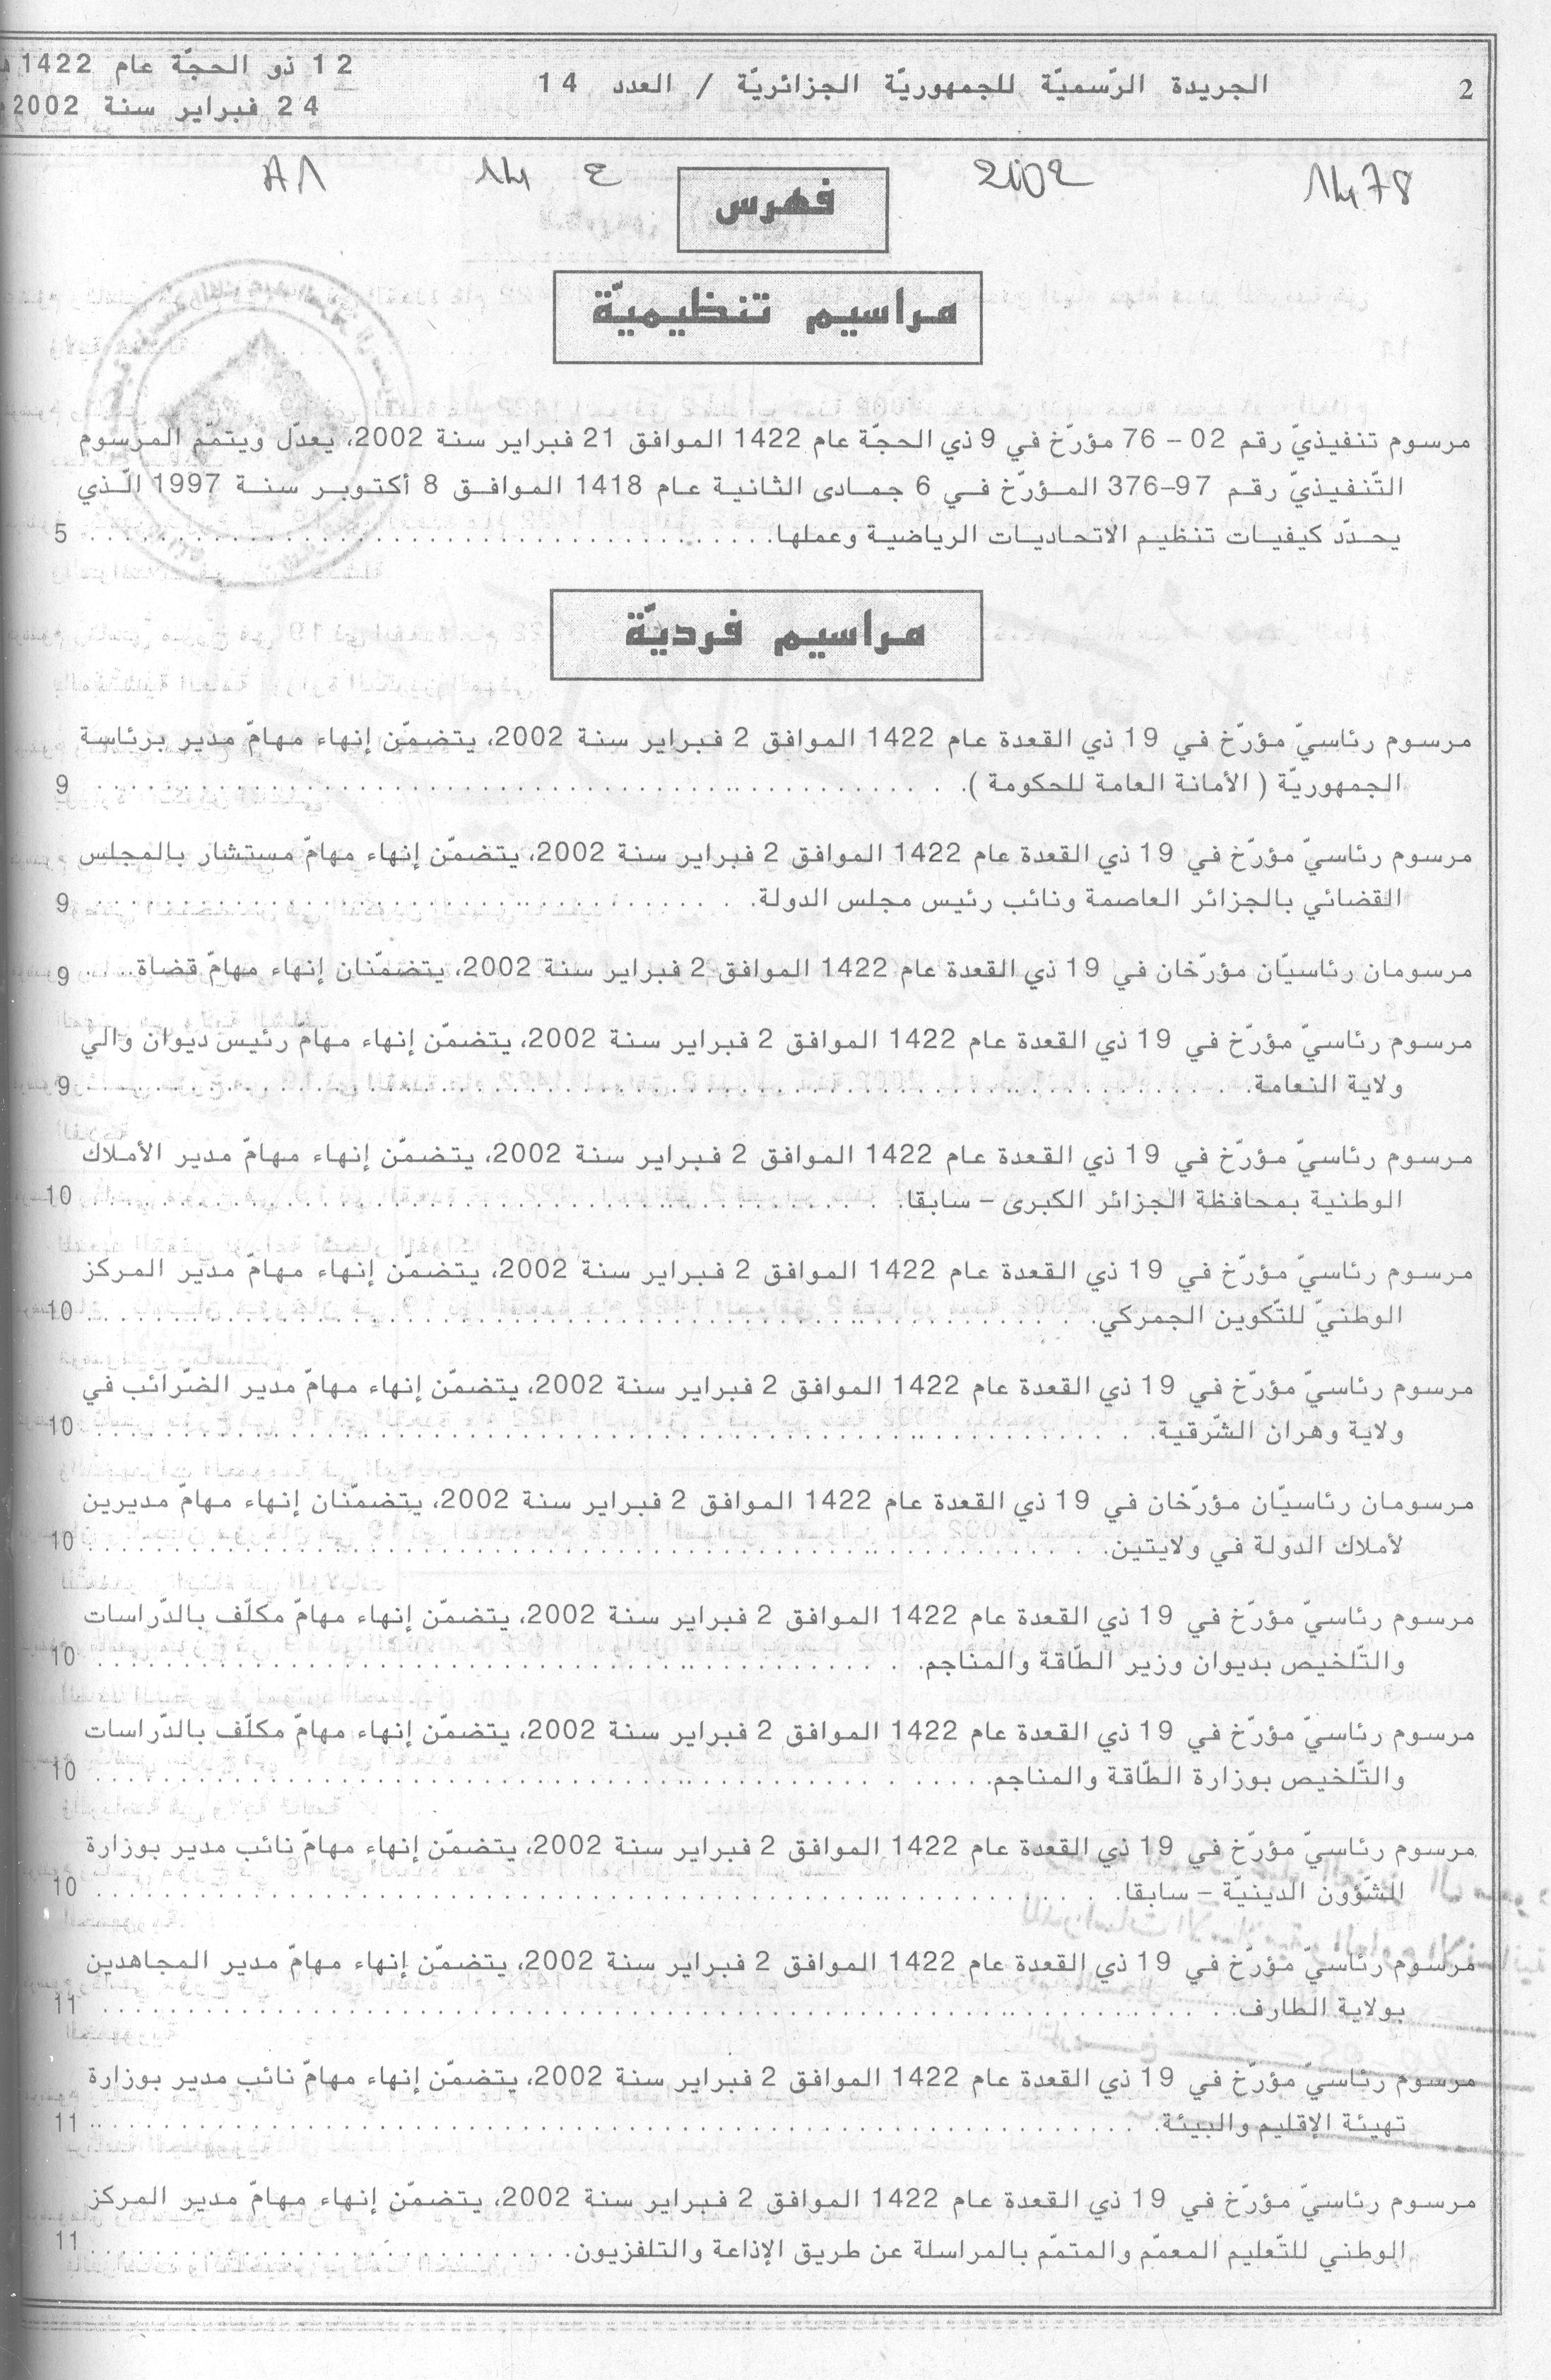 2
الجريدة الرّسميّة للجمهوريّة الجزائريّة / العدد 14
12 ذو الحجّة عام 1422 هـ
24 فبراير سنة 2002 م
1478
2002
ع 14
A1
فهرس
مراسيم تنظيميّة
مرسوم تنفيذيّ رقم 02 – 76 مؤرّخ في 9 ذي الحجّة عام 1422 الموافق 21 فبراير سنة 2002، يعدّل ويتمّم المرسوم
التّنفيذيّ رقم 97–376 المؤرّخ في 6 جمادى الثانية عام 1418 الموافق 8 أكتوبر سنة 1997 الّذي
يحدّد كيفيات تنظيم الاتحاديات الرياضية وعملها. 5
مراسيم فرديّة
مرسوم رئاسيّ مؤرّخ في 19 ذي القعدة عام 1422 الموافق 2 فبراير سنة 2002، يتضمّن إنهاء مهامّ مدير برئاسة
الجمهوريّة ( الأمانة العامة للحكومة ). 9
مرسوم رئاسيّ مؤرّخ في 19 ذي القعدة عام 1422 الموافق 2 فبراير سنة 2002، يتضمّن إنهاء مهامّ مستشار بالمجلس
القضائي بالجزائر العاصمة ونائب رئيس مجلس الدولة. 9
مرسومان رئاسيّان مؤرّخان في 19 ذي القعدة عام 1422 الموافق 2 فبراير سنة 2002، يتضمّنان إنهاء مهامّ قضاة. 9
مرسوم رئاسيّ مؤرّخ في 19 ذي القعدة عام 1422 الموافق 2 فبراير سنة 2002، يتضمّن إنهاء مهامّ رئيس ديوان والي
ولاية النعامة. 9
مرسوم رئاسيّ مؤرّخ في 19 ذي القعدة عام 1422 الموافق 2 فبراير سنة 2002، يتضمّن إنهاء مهامّ مدير الأملاك
الوطنية بمحافظة الجزائر الكبرى – سابقا. 10
مرسوم رئاسيّ مؤرّخ في 19 ذي القعدة عام 1422 الموافق 2 فبراير سنة 2002، يتضمّن إنهاء مهامّ مدير المركز
الوطنيّ للتّكوين الجمركي. 10
مرسوم رئاسيّ مؤرّخ في 19 ذي القعدة عام 1422 الموافق 2 فبراير سنة 2002، يتضمّن إنهاء مهامّ مدير الضّرائب في
ولاية وهران الشّرقية. 10
مرسومان رئاسيّان مؤرّخان في 19 ذي القعدة عام 1422 الموافق 2 فبراير سنة 2002، يتضمّنان إنهاء مهامّ مديرين
لأملاك الدولة في ولايتين. 10
مرسوم رئاسيّ مؤرّخ في 19 ذي القعدة عام 1422 الموافق 2 فبراير سنة 2002، يتضمّن إنهاء مهامّ مكلّف بالدّراسات
والتّلخيص بديوان وزير الطّاقة والمناجم. 10
مرسوم رئاسيّ مؤرّخ في 19 ذي القعدة عام 1422 الموافق 2 فبراير سنة 2002، يتضمّن إنهاء مهامّ مكلّف بالدّراسات
والتّلخيص بوزارة الطّاقة والمناجم. 10
مرسوم رئاسيّ مؤرّخ في 19 ذي القعدة عام 1422 الموافق 2 فبراير سنة 2002، يتضمّن إنهاء مهامّ نائب مدير بوزارة
الشّؤون الدينيّة – سابقا. 10
مرسوم رئاسيّ مؤرّخ في 19 ذي القعدة عام 1422 الموافق 2 فبراير سنة 2002، يتضمّن إنهاء مهامّ مدير المجاهدين
بولاية الطارف. 11
مرسوم رئاسيّ مؤرّخ في 19 ذي القعدة عام 1422 الموافق 2 فبراير سنة 2002، يتضمّن إنهاء مهامّ نائب مدير بوزارة
تهيئة الإقليم والبيئة. 11
مرسوم رئاسيّ مؤرّخ في 19 ذي القعدة عام 1422 الموافق 2 فبراير سنة 2002، يتضمّن إنهاء مهامّ مدير المركز
الوطني للتّعليم المعمّم والمتمّم بالمراسلة عن طريق الإذاعة والتلفزيون. 11